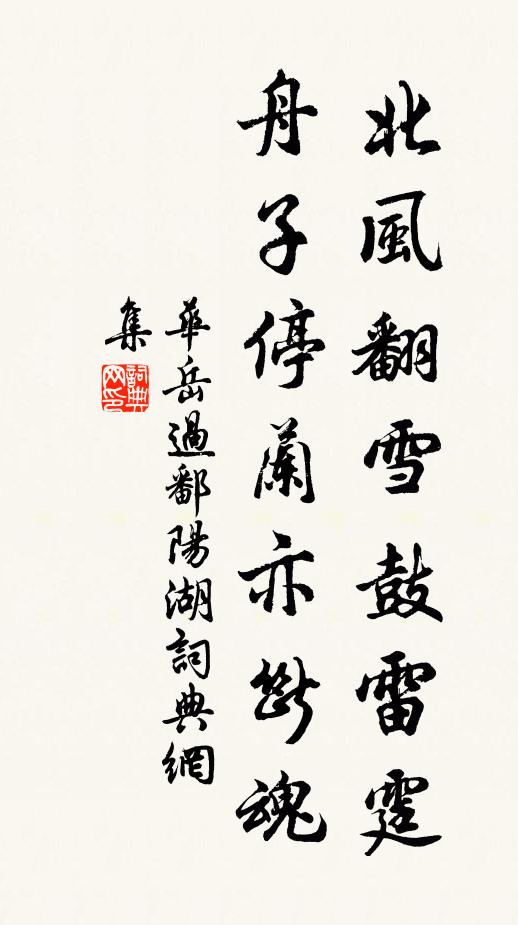 北風翻雪鼓雷霆
舟子停蘭亦斷魂
華岳過鄱陽湖詞典網
集
詞典
网印